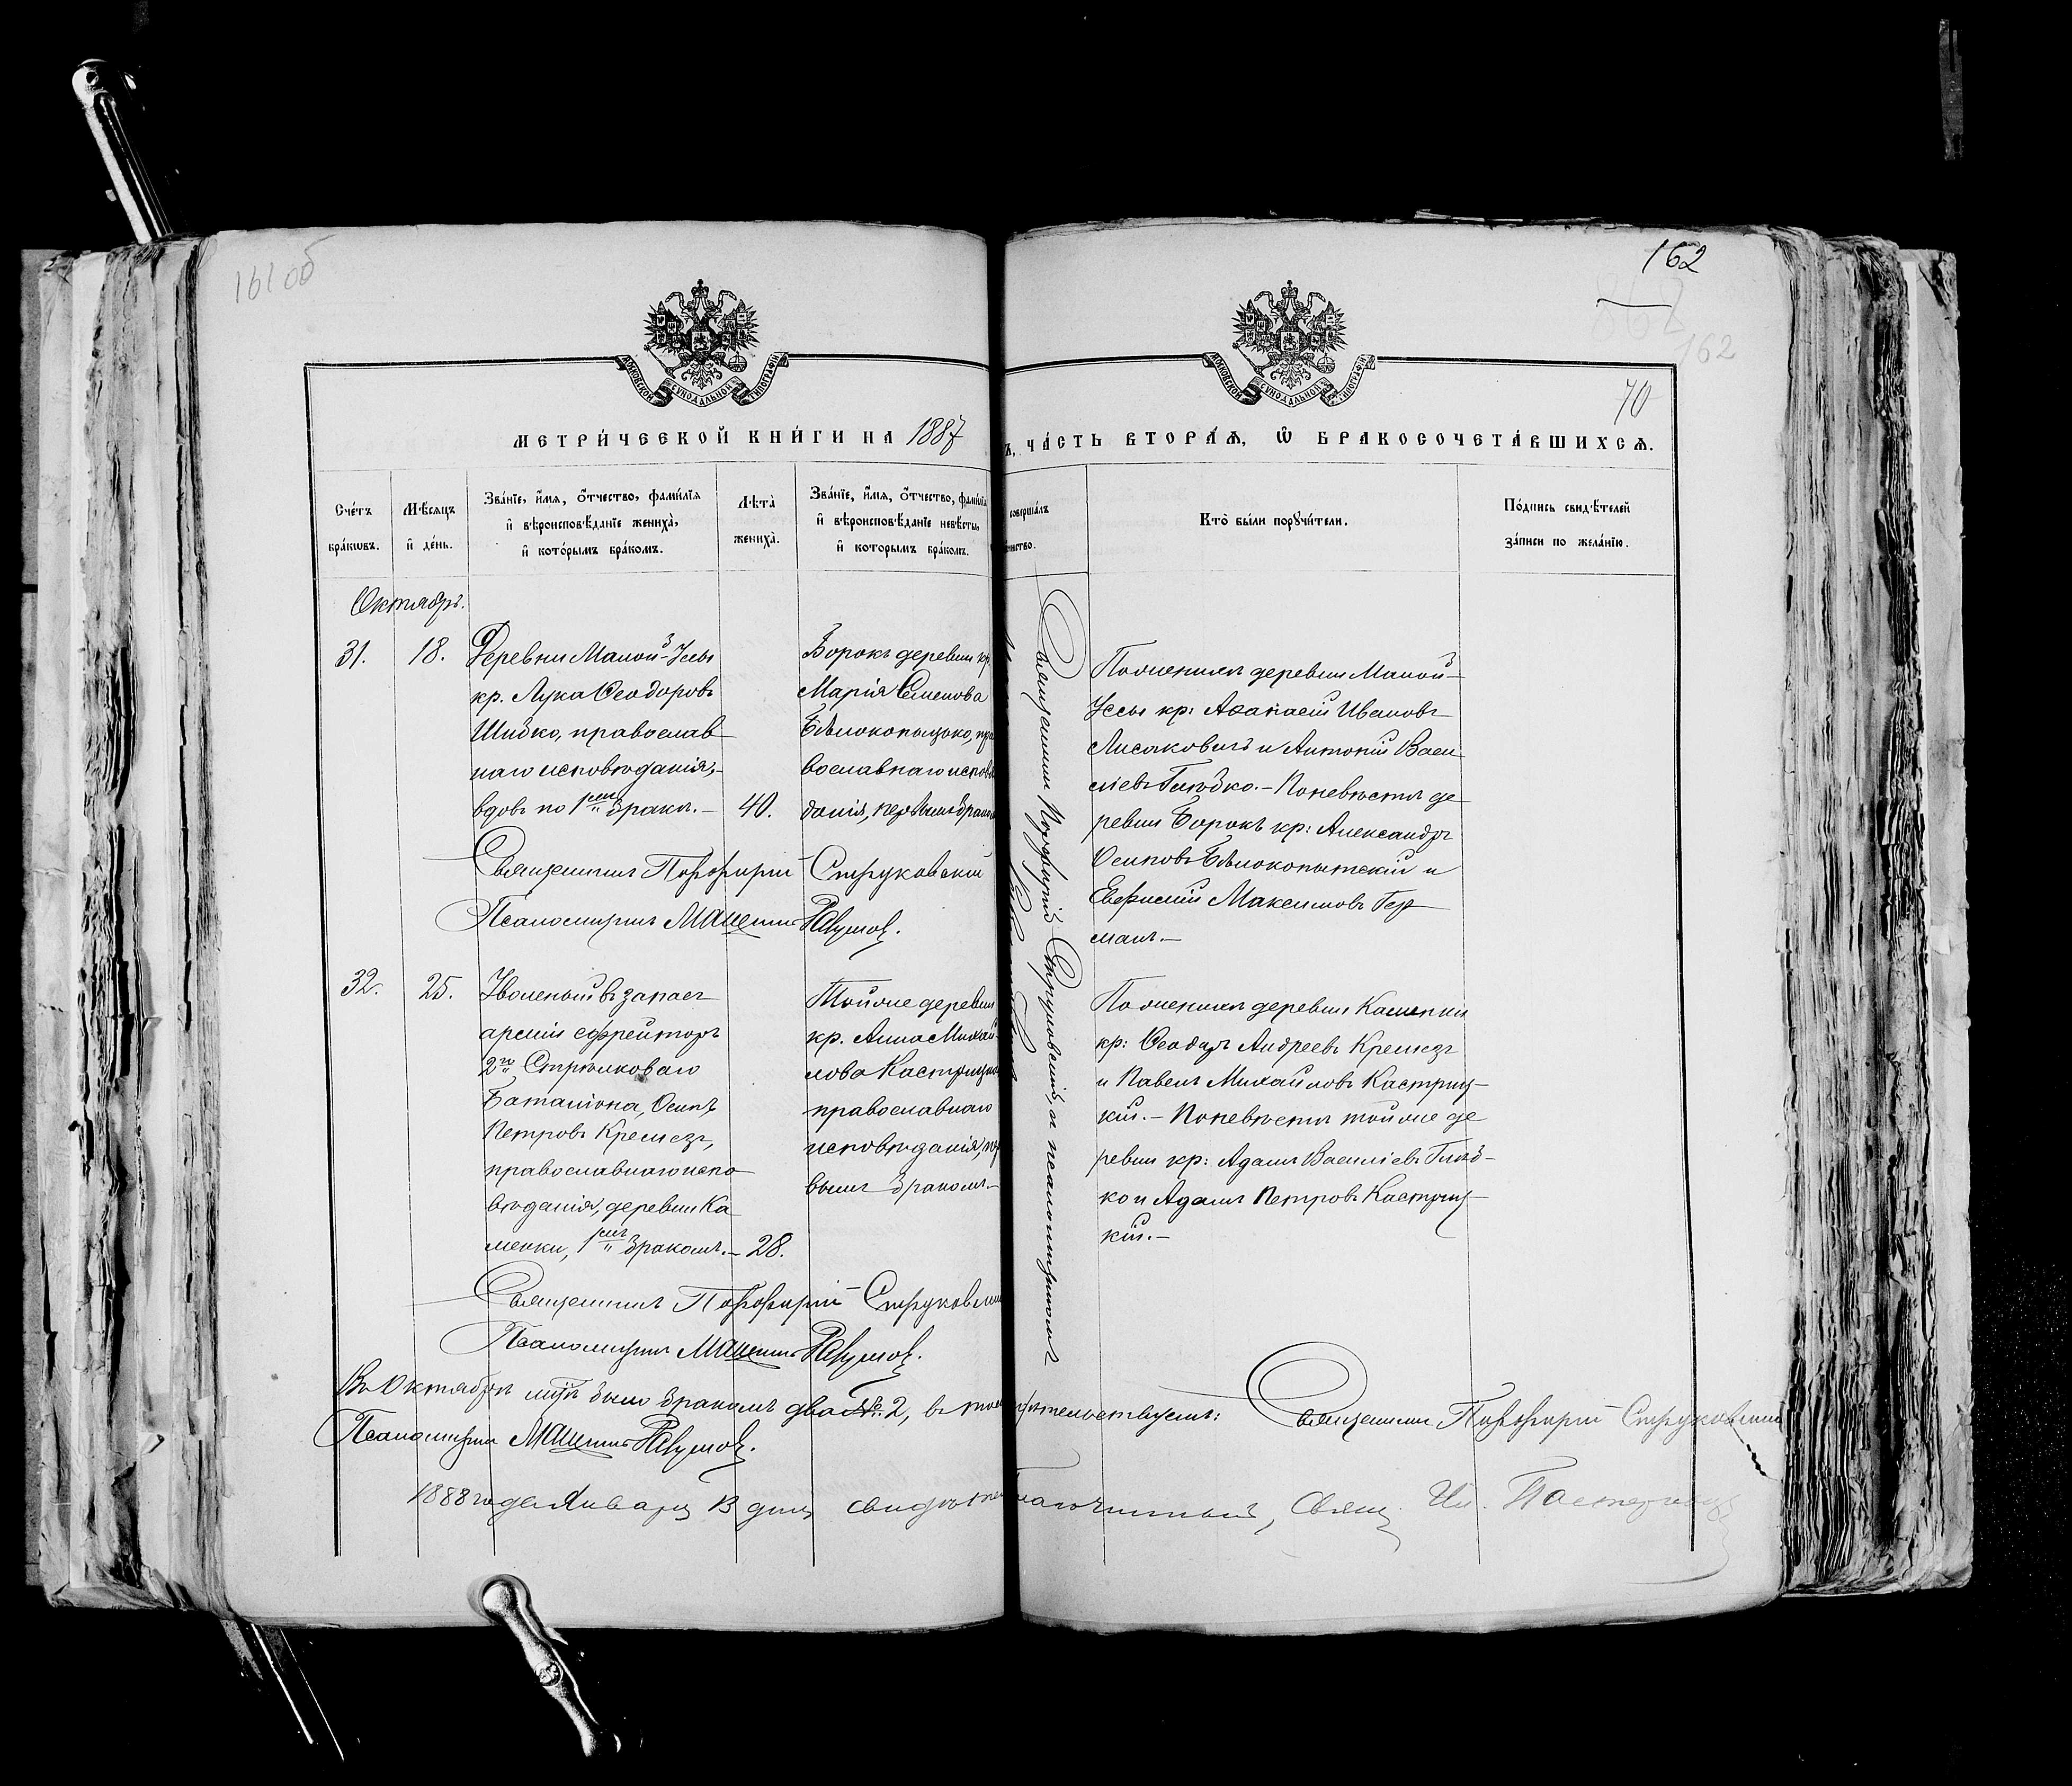 161 об
162
162
70
МОСКОВСКОЙ СѴНОДАЛЬНОЙ ТИПОГРАФІИ
МОСКОВСКОЙ СѴНОДАЛЬНОЙ ТИПОГРАФІИ
МЕТРИ́ЧЕСКОЙ КНИ́ГИ НА 1887
Ъ, ЧА́СТЬ ВТОРА́Ѧ, Ѿ БРАКОСОЧЕТА́ВШИХСѦ.
Сче́тъ бра́кѡвъ.
Мѣ́сяцъ и҆ де́нь.
Зва́нїе, и҆́мѧ, ѻ҆́тчество, фами́лїѧ и҆ вѣроисповѣ́данїе жениха̀, и҆ кото́рымъ бра́комъ.
Лѣта̀ жениха̀.
Зва́нїе, и҆́мѧ, ѻ҆́тчество, фами́лїѧ и҆ вѣроисповѣ́данїе невѣ́сты, и҆ которымъ бра́комъ.
соверша́лъ
инство.
Кто̀ бы́ли порꙋчи́тели.
По́дпись свидѣ́телей за́писи по жела́нїю.
Октябрь.
31.
18.
Деревни Малой-Уссы
кр. Лука Ѳеодоровъ
Шибко, православ
наго исповѣданія,-
вдовъ по 1мъ бракѣ.-
40.
Борокъ деревни кр
Марія Семенова
Бѣлокопыцко, пра
вославнаго исповѣ
данія, первымъ браком
По женихѣ деревни Малой-
Уссы кр: Аѳанасій Ивановъ
Лисаковичъ и Антоній Васи
ліевъ Глѣбко.- По невѣстѣ де
ревни Борокъ кр: Александръ
Осиповъ Бѣлокопытскій и
Евфимій Максимовъ Гер
манъ.-
Священникъ Порфирій Струковскій
Псаломщикъ
32.
25.
Уволеный въ запасъ
арміи ефрейторъ
2го Стрѣлковаго
Баталіона, Осипъ
Петровъ Кремезъ,
православнаго испо
вѣданія, деревни Ка
менки, 1мъ бракомъ.-
28.
Той же деревни
кр. Анна Михай-
лова Кастрицка
православнаго
исповѣданія, пер
вымъ бракомъ.-
По женихѣ деревни Каменки
кр: Ѳеодоръ Андреевъ Кремезъ
и Павелъ Михайловъ Кастриц-
кій.- По невѣстѣ той же де
ревни кр: Адамъ Василіевъ Глѣб-
ко и Адамъ Петровъ Кастриц-
кій.-
Священникъ Порфирій Струковскій, и псаломщикомъ
Священникъ Порфирій Струковскі
Псаломщикъ
Въ Октябрѣ мцѣ было браковъ два № 2, въ томъ
дѣтельствуемъ: Священникъ Порфирій Струковскій
Псаломщикъ
1888 года Января 13 дня свидѣте
Благочинный, Свящ.